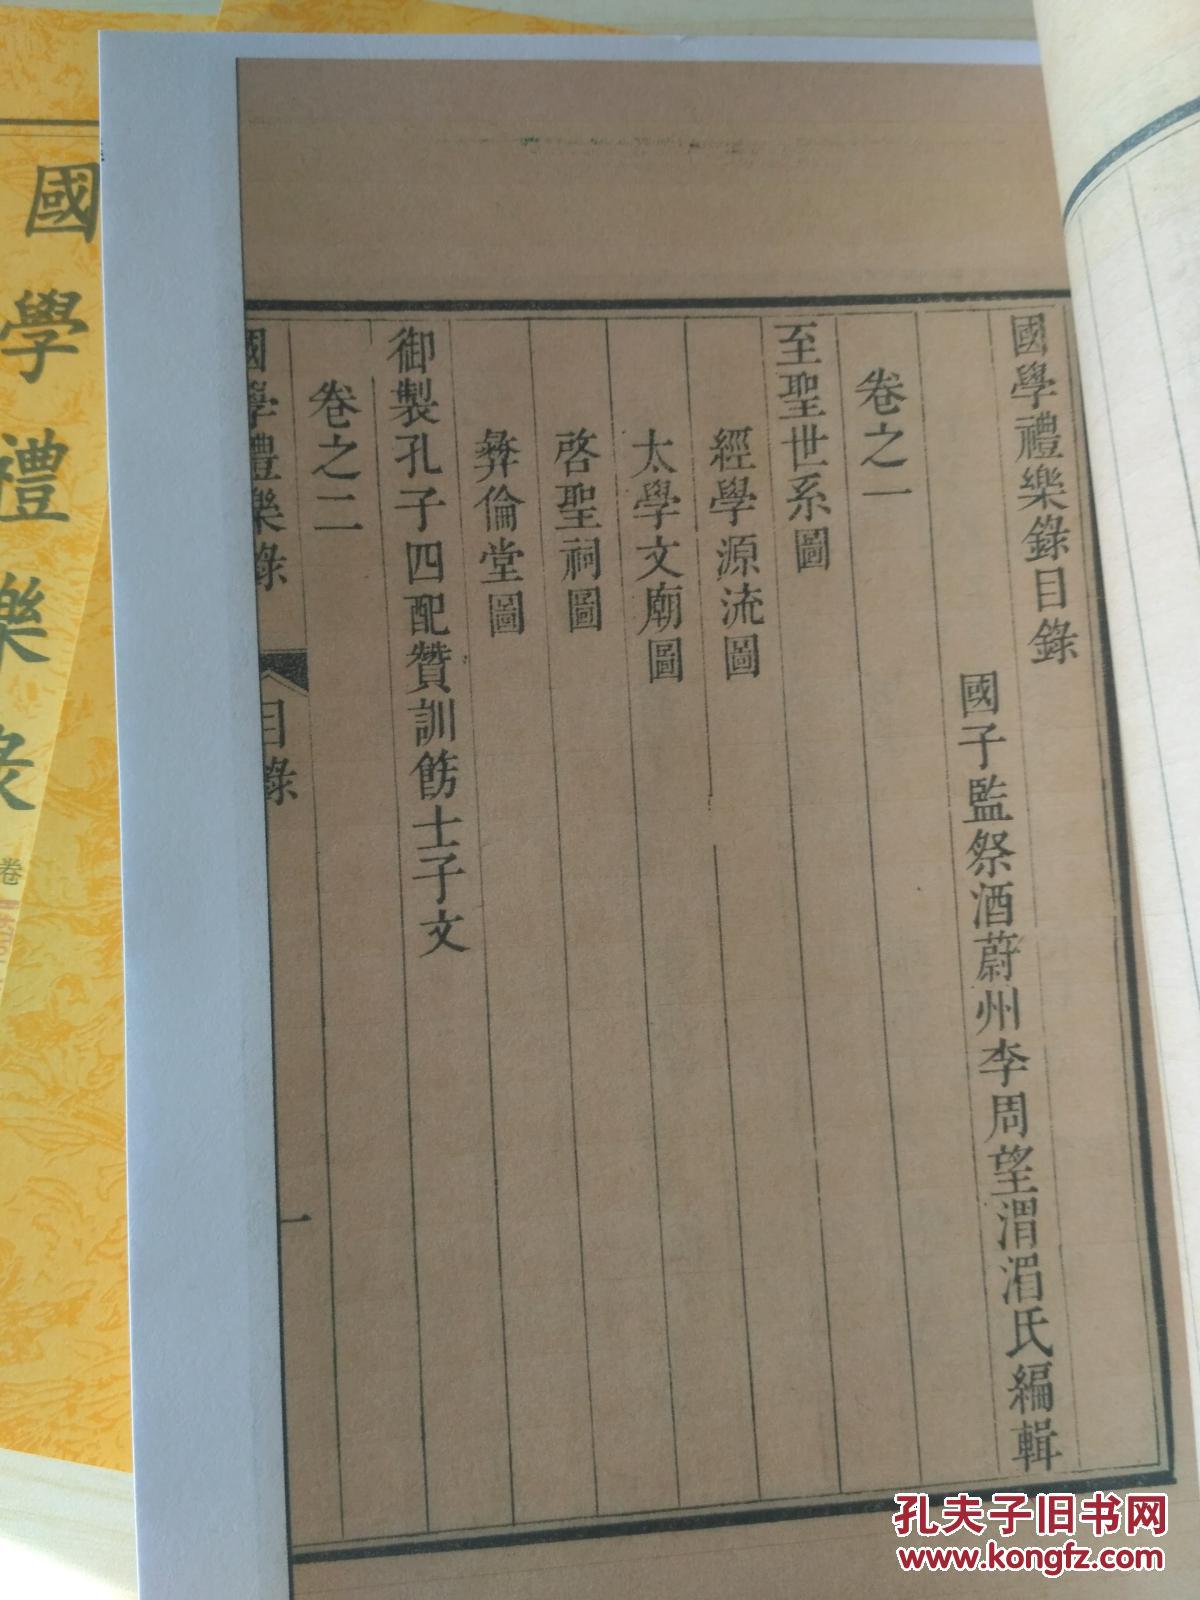 國學禮樂錄目錄
國子監祭酒蔚州李周望渭湄氏編輯
卷之一
至聖世系圖
經學源流圖
太學文廟圖
啓聖祠圖
彝倫堂圖
御製孔子四配贊訓飭士子文
卷之二
國學禮樂錄 目錄 一
國學禮樂彔
卷
孔夫子旧书网
www.kongfz.com